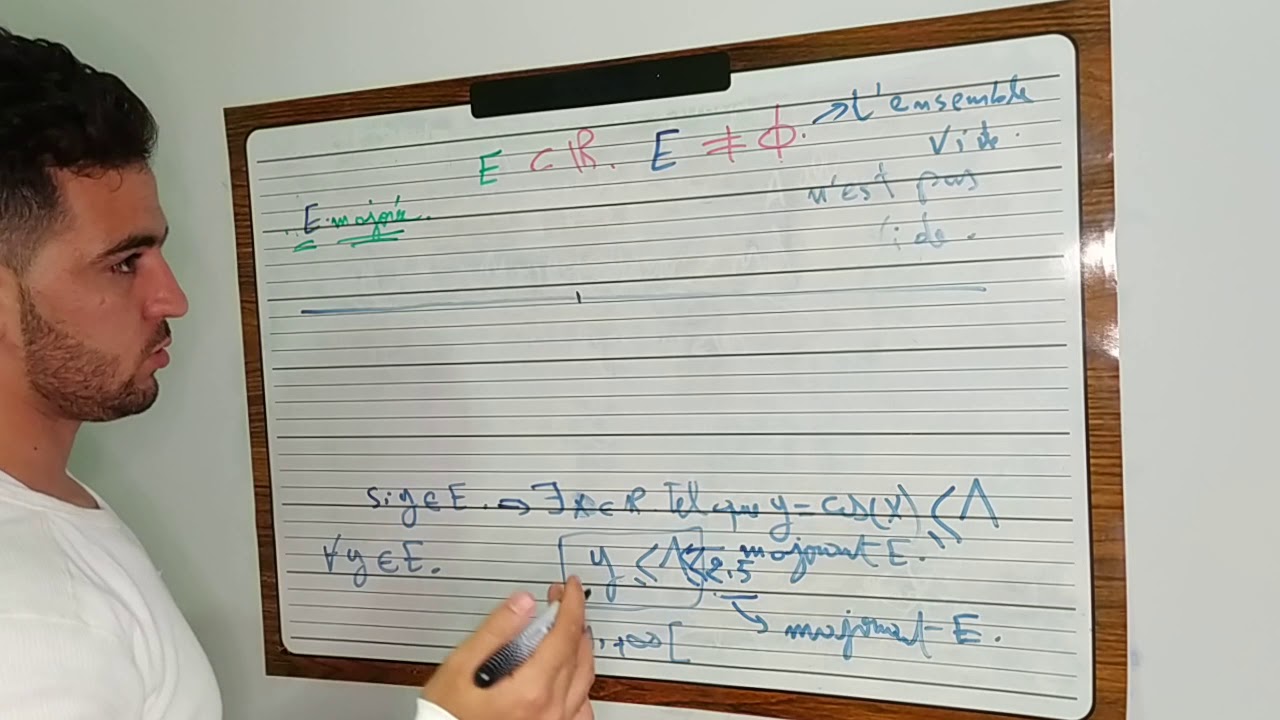 E ⊂ ℝ. E ≠ ∅. → L'ensemble
vide.
n'est pas
vide.
E majorée.
si y ∈ E. ⇒ ∃ x ∈ ℝ. Tel que y = cos(x) ≤ 1
∀ y ∈ E. y ≤ 1 ≤ 2,5 majorant E.
→ majorant E.
1, +∞[